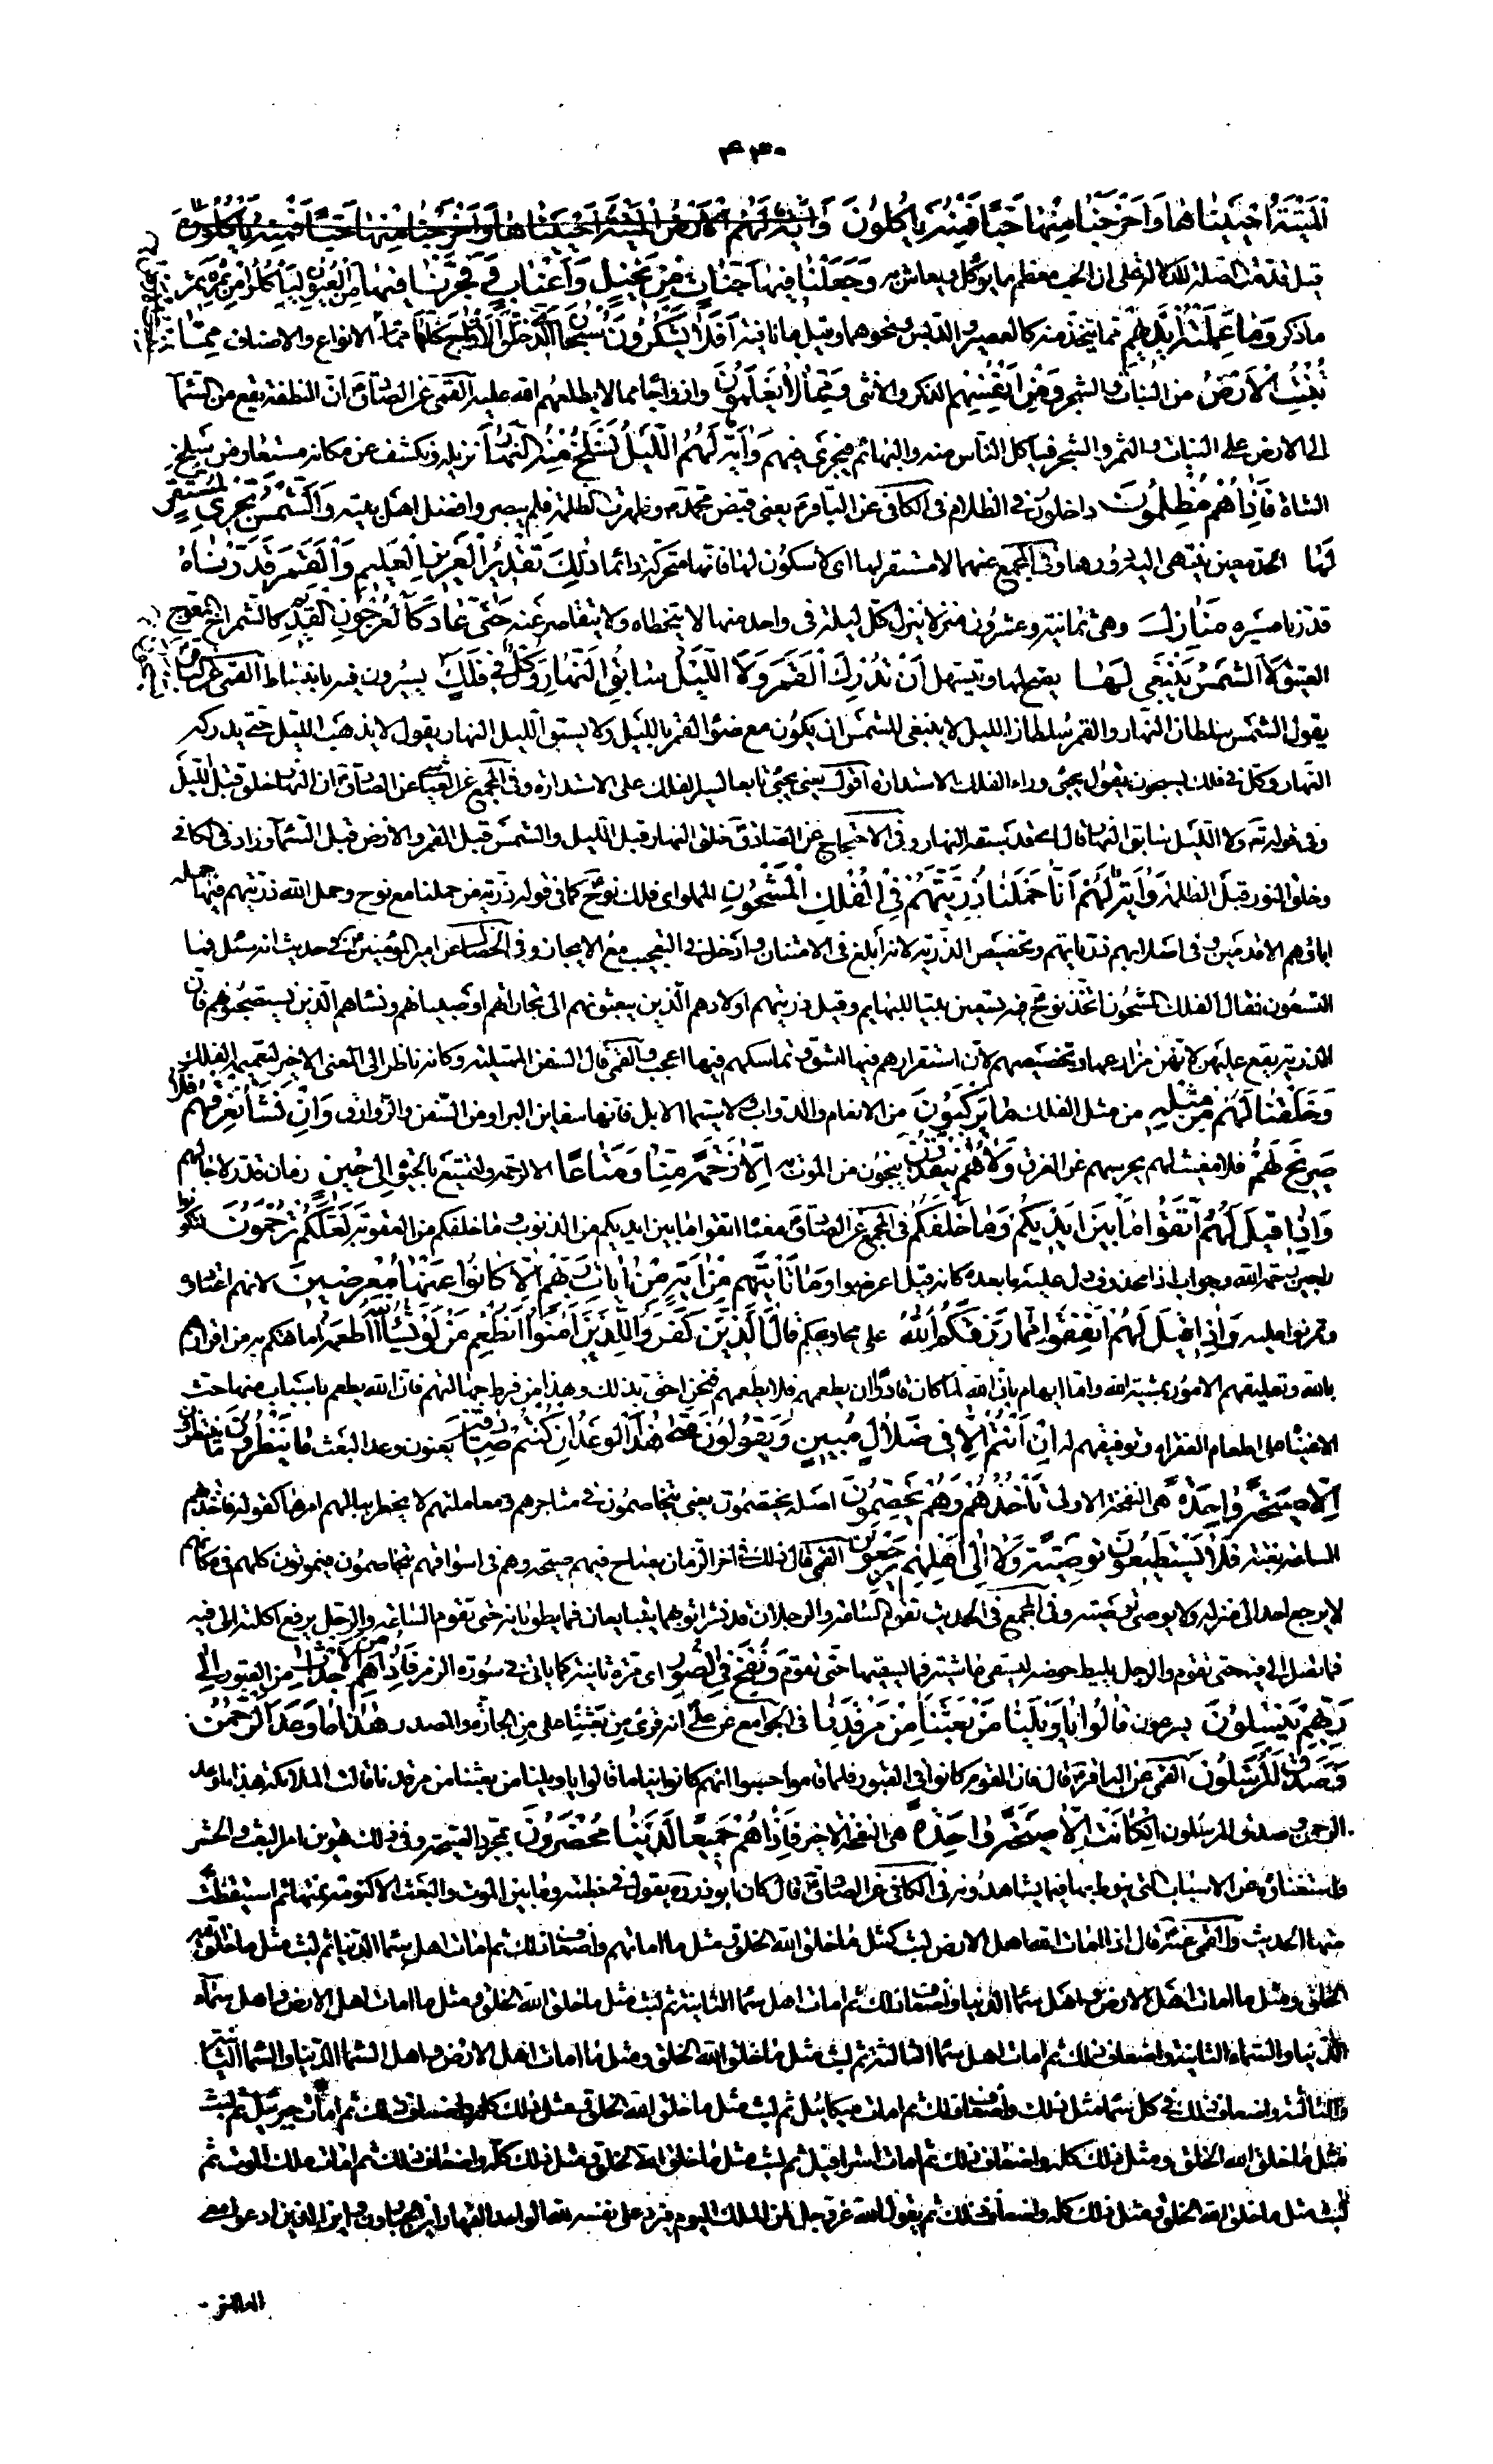 ٤٣٠
الْمَيْتَةُ أَحْيَيْنَاهَا وَأَخْرَجْنَا مِنْهَا حَبًّا فَمِنْهُ يَأْكُلُونَ وَآيَةٌ لَهُمُ الْأَرْضُ الْمَيْتَةُ أَحْيَيْنَاهَا وَأَخْرَجْنَا مِنْهَا حَبًّا فَمِنْهُ يَأْكُلُونَ
قيل قدمت الصلة للدلالة على ان الحب معظم ما يؤكل ويعاش به وَجَعَلْنَا فِيهَا جَنَّاتٍ مِنْ نَخِيلٍ وَأَعْنَابٍ وَفَجَّرْنَا فِيهَا مِنَ الْعُيُونِ لِيَأْكُلُوا مِنْ ثَمَرِهِ ثمر
ما ذكر وَمَا عَمِلَتْهُ أَيْدِيهِمْ مما يتخذ منه كالعصير والدبس ونحوهما وقيل ما نافية أَفَلَا يَشْكُرُونَ سُبْحَانَ الَّذِي خَلَقَ الْأَزْوَاجَ كُلَّهَا الانواع والاصناف مِمَّا
تُنْبِتُ الْأَرْضُ من النبات والشجر وَمِنْ أَنْفُسِهِمْ الذكر والانثى وَمِمَّا لَا يَعْلَمُونَ وازواجا مما لا يطلعهم الله عليه القمى عن الصادق ان النطفة تقع من السماء
الى الارض على النبات والثمر والشجر فياكل الناس منه والبهائم فيجرى فيهم وَآيَةٌ لَهُمُ اللَّيْلُ نَسْلَخُ مِنْهُ النَّهَارَ نزيله ونكشف عن مكانه مستعار من سلخ
الشاة فَإِذَا هُمْ مُظْلِمُونَ داخلون فى الظلام فى الكافى عن الباقر يعنى قبض محمد وظهرت الظلمة فلم يبصروا فضل اهل بيته وَالشَّمْسُ تَجْرِي لِمُسْتَقَرٍّ
لَهَا لحد معين ينتهى اليه دورها وفى المجمع عنهما لا مستقر لها اى لا سكون لها فانها متحركة دائما ذَلِكَ تَقْدِيرُ الْعَزِيزِ الْعَلِيمِ وَالْقَمَرَ قَدَّرْنَاهُ
قدرنا مسيره مَنَازِلَ وهى ثمانية وعشرون منزلا ينزل كل ليلة فى واحد منها لا يتخطاه ولا يتقاصر عنه حَتَّى عَادَ كَالْعُرْجُونِ الْقَدِيمِ كالشمراخ المعوج
العتيق لَا الشَّمْسُ يَنْبَغِي لَهَا يصح لها ويتسهل أَنْ تُدْرِكَ الْقَمَرَ وَلَا اللَّيْلُ سَابِقُ النَّهَارِ وَكُلٌّ فِي فَلَكٍ يسيرون فيه بانبساط القمى عن الباقر
يقول الشمس سلطان النهار والقمر سلطان الليل لا ينبغى للشمس ان يكون مع ضوء القمر بالليل ولا يسبق الليل النهار يقول لا يذهب الليل حتى يدركه
النهار وكل فى فلك يسبحون يقول يجئ وراء الفلك الاستدارة اقول يعنى يجئ تابعا لسير الفلك على الاستدارة وفى المجمع عن العياشى عن الصادق ان النهار خلق قبل الليل
وفى قوله تع ولا الليل سابق النهار قال اى قد سبقه النهار وفى الاحتجاج عن الصادق خلق النهار قبل الليل والشمس قبل القمر والارض قبل السماء وزاد فى الكافى
وخلق النور قبل الظلمة وَآيَةٌ لَهُمْ أَنَّا حَمَلْنَا ذُرِّيَّتَهُمْ فِي الْفُلْكِ الْمَشْحُونِ المملو اى فلك نوح كما فى قوله ذرية من حملنا مع نوح وحمل الله ذريتهم فيها حمله
اباؤهم الاقدمين وفى اصلابهم ذرياتهم وتخصيص الذرية لانه ابلغ فى الامتنان وادخل فى التعجب مع الايجاز وفى الخصال عن امير المؤمنين فى حديث انه سئل فما
التسعون فقال الفلك المشحون اتخذ نوح فيه تسعين بيتا للبهايم وقيل ذريتهم اولادهم الذين يبعثونهم الى تجاراتهم او صبيانهم ونساءهم الذين يستصحبونهم فان
الذرية يقع عليهن لانهن مزارعها وتخصيصهم لان استقرارهم فيها اشق وتماسكهم فيها اعجب والقمى قال السفن الممتلئة وكانه ناظر الى المعنى الاخير لتعميم الفلك
وَخَلَقْنَا لَهُمْ مِنْ مِثْلِهِ من مثل الفلك مَا يَرْكَبُونَ من الانعام والدواب ولا سيما الابل فانها سفاين البر او من السفن والزوارق وَإِنْ نَشَأْ نُغْرِقْهُمْ فَلَا
صَرِيخَ لَهُمْ فلا مغيث لهم يحرسهم عن الغرق وَلَا هُمْ يُنْقَذُونَ ينجون من الموت به إِلَّا رَحْمَةً مِنَّا وَمَتَاعًا الا لرحمة ولتمتيع بالحيوة إِلَى حِينٍ زمان قدر لاجالهم
وَإِذَا قِيلَ لَهُمُ اتَّقُوا مَا بَيْنَ أَيْدِيكُمْ وَمَا خَلْفَكُمْ فى المجمع عن الصادق معناه اتقوا ما بين ايديكم من الذنوب وما خلفكم من العقوبة لَعَلَّكُمْ تُرْحَمُونَ لتكونوا
راجين رحمة الله وجواب اذا محذوف دل عليه ما بعده كانه قيل اعرضوا وَمَا تَأْتِيهِمْ مِنْ آيَةٍ مِنْ آيَاتِ رَبِّهِمْ إِلَّا كَانُوا عَنْهَا مُعْرِضِينَ لانهم اعتادوا
وتمرنوا عليه وَإِذَا قِيلَ لَهُمْ أَنْفِقُوا مِمَّا رَزَقَكُمُ اللَّهُ على محاويجكم قَالَ الَّذِينَ كَفَرُوا لِلَّذِينَ آمَنُوا أَنُطْعِمُ مَنْ لَوْ يَشَاءُ اللَّهُ أَطْعَمَهُ اما تهكم به من اقرارهم
بالله وتعليقهم الامور بمشيته الله واما ايهام بان الله لما كان قادرا ان يطعمهم فلا يطعمهم فنحن احق بذلك وهذا من فرط جهالتهم فان الله يطعم باسباب منها حث
الاغنياء على اطعام الفقراء وتوفيقهم له إِنْ أَنْتُمْ إِلَّا فِي ضَلَالٍ مُبِينٍ وَيَقُولُونَ مَتَى هَذَا الْوَعْدُ إِنْ كُنْتُمْ صَادِقِينَ يعنون وعد البعث مَا يَنْظُرُونَ ما ينتظرون
إِلَّا صَيْحَةً وَاحِدَةً هى النفخة الاولى تَأْخُذُهُمْ وَهُمْ يَخِصِّمُونَ اصله يختصمون يعنى يتخاصمون فى متاجرهم ومعاملتهم لا يخطر ببالهم امرها كقوله فاخذتهم
الساعة بغتة فَلَا يَسْتَطِيعُونَ تَوْصِيَةً وَلَا إِلَى أَهْلِهِمْ يَرْجِعُونَ القمى قال ذلك فى اخر الزمان يصاح فيهم صيحة وهم فى اسواقهم يتخاصمون فيموتون كلهم فى مكانهم
لا يرجع احد الى منزله ولا يوصى بوصية وفى المجمع فى الحديث تقوم الساعة والرجلان قد نشرا ثوبهما يتبايعان فما يطويانه حتى تقوم الساعة والرجل يرفع اكلته الى فيه
فما تصل الى فيه حتى تقوم والرجل يليط حوضه ليسقى ماشيته فما يسقيها حتى تقوم وَنُفِخَ فِي الصُّورِ اى مرة ثانية كما ياتى فى سورة الزمر فَإِذَا هُمْ مِنَ الْأَجْدَاثِ من القبور إِلَى
رَبِّهِمْ يَنْسِلُونَ يسرعون قَالُوا يَا وَيْلَنَا مَنْ بَعَثَنَا مِنْ مَرْقَدِنَا فى الجوامع عن على انه قرئ مِن بَعْثِنا على من الجارة والمصدر هَذَا مَا وَعَدَ الرَّحْمَنُ
وَصَدَقَ الْمُرْسَلُونَ القمى عن الباقر قال فان القوم كانوا فى القبور فلما قاموا حسبوا انهم كانوا نياما قالوا يا ويلنا من بعثنا من مرقدنا قالت الملائكة هذا ما وعد
الرحمن وصدق المرسلون إِنْ كَانَتْ إِلَّا صَيْحَةً وَاحِدَةً هى النفخة الاخيرة فَإِذَا هُمْ جَمِيعٌ لَدَيْنَا مُحْضَرُونَ بمجرد الصيحة وفى ذلك تهوين امر البعث والحشر
واستغناؤه عن الاسباب التى ينوط بها فيما يشاهدونه فى الكافى عن الصادق قال كان ابو ذر ره يقول فى خطبته وما بين الموت والبعث الا كنومة نمتها ثم استيقظت
منها الحديث والقمى عنه قال اذا امات الله اهل الارض لبث كمثل ما خلق الله الخلق ومثل ما اماتهم واضعاف ذلك ثم امات اهل سماء الدنيا ثم لبث مثل ما خلق الله
الخلق ومثل ما امات اهل الارض واهل سماء الدنيا واضعاف ذلك ثم امات اهل سماء الثانية ثم لبث مثل ما خلق الله الخلق ومثل ما امات اهل الارض واهل سماء
الدنيا والسماء الثانية واضعاف ذلك ثم امات اهل سماء الثالثة ثم لبث مثل ما خلق الله الخلق ومثل ما امات اهل الارض واهل السماء الدنيا والسماء الثانية
والثالثة واضعاف ذلك فى كل سماء مثل ذلك واضعاف ذلك ثم امات ميكائيل ثم لبث مثل ما خلق الله الخلق ومثل ذلك كله واضعاف ذلك ثم امات جبرئيل ثم لبث
مثل ما خلق الله الخلق ومثل ذلك كله واضعاف ذلك ثم امات اسرافيل ثم لبث مثل ما خلق الله الخلق ومثل ذلك كله واضعاف ذلك ثم امات ملك الموت ثم
لبث مثل ما خلق الله الخلق ومثل ذلك كله واضعاف ذلك ثم يقول الله عز وجل لمن الملك اليوم فيرد على نفسه لله الواحد القهار اين الجبارون واين الذين ادعوا معى